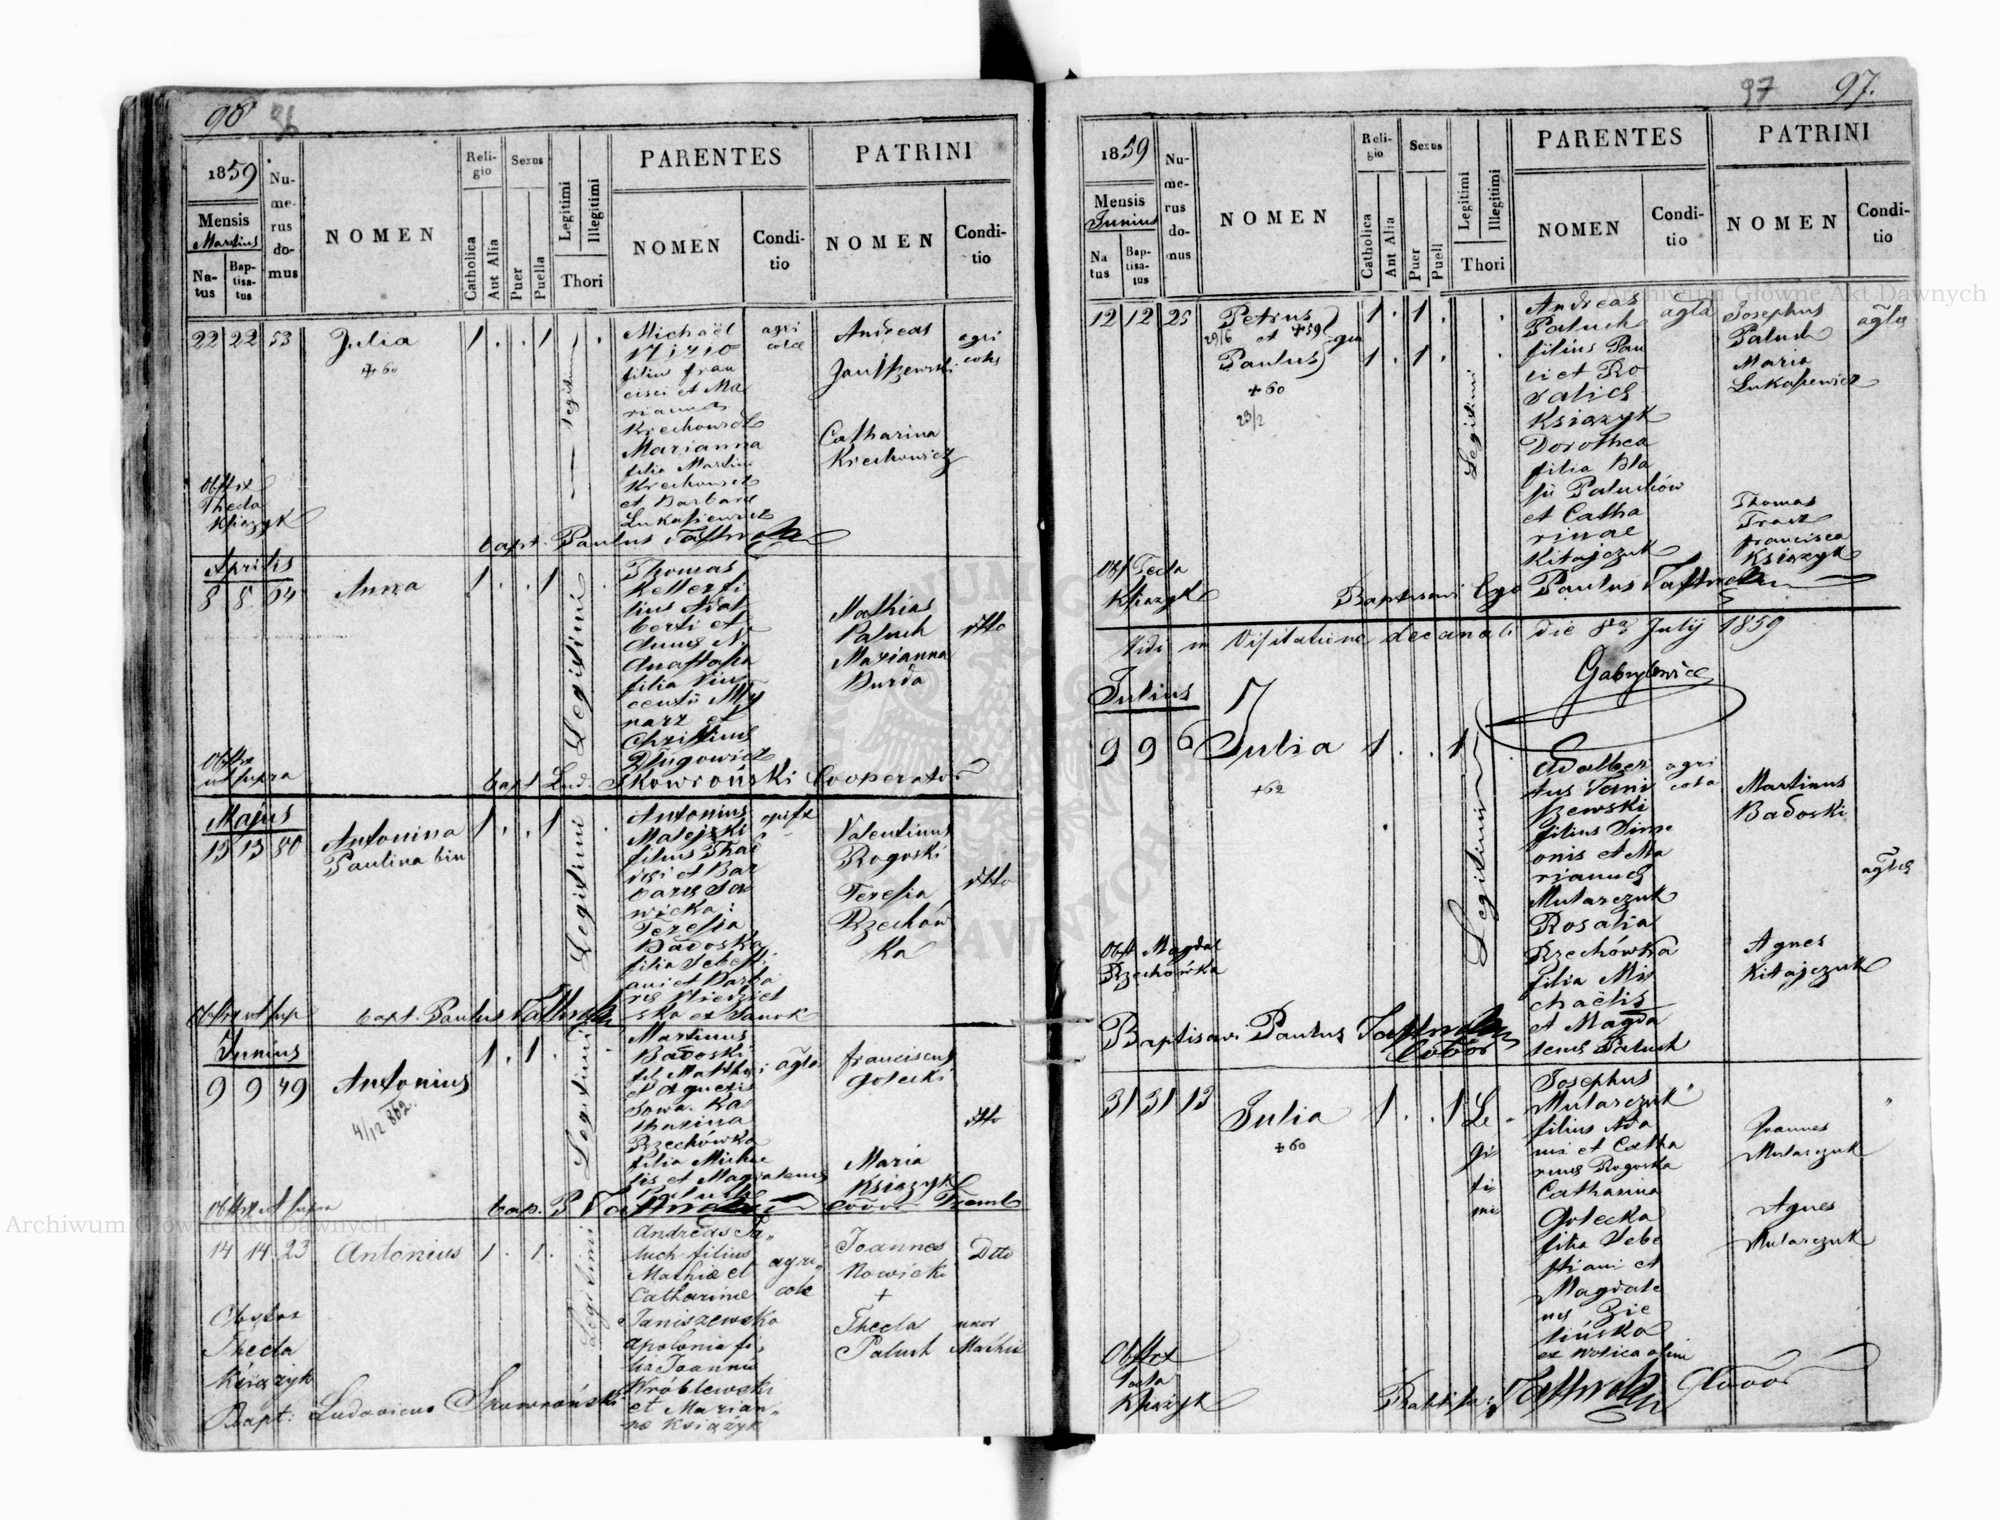 96
1859
Mensis
Martius
Na-
tus
Bap-
tisa-
tus
Nu-
me-
rus
do-
mus
NOMEN
Reli-
gio
Catholica
Aut Alia
Sexus
Puer
Puella
Legitimi
Illegitimi
Thori
PARENTES
NOMEN
Condi-
tio
PATRINI
NOMEN
Condi-
tio
22 22 53
Julia
+ 60
1 . . 1 .
Legitimi
Michaël
filiu fran
cisci et Ma
rianna
Krechowicz
Marianna
filia Martini
Krechowicz
et Barbara
Łukasiewicz
agri
colae
Andreas
Catharina
Krechowicz
agri
colae
Obstx
Thecla
Ksiązyk
bapt. Paulus
Aprilis
8 8 64
Anna
1 . . 1 .
Legitimi
Thomas
Keller fi
lius Adal
berti et
Annae N.
Anastasia
filia Vin
centii My
narz et
Christinae
Długowicz
Mathias
Paluch
Marianna
Burda
ditto
Obstx
ut supra
bapt Lud. Skowroński Cooperator
Majus
13 13 80
Antonina
Paulina bin
1 . . 1 .
Legitimi
Antonius
Matejski
filius Thad
dei et Bar
barae Sa
wicka:
Teresia
Badoska
filia Sebasti
ani et Barba
rae
ska ex Sanok
opifx
Valentinus
Rogoski
Teresia
Rzechów
ka
ditto
Obstx ut sup
bapt. Paulus
Junius
9 9 49
Antonius
4/12 862.
1 . 1 .
Legitimi
Martinus
Badoski
fil Mathaei
et Agnetis
Sowa. Ka
tharina
Rzechówka
filia Micha
lis et Magdalenae
Paluch
agla
Franciscus
Gołecki
Maria
Ksiązyk
ditto
Obstx ut supra
bap. P
14 14 23
Antonius
1 . 1 .
Legitimi
Andreas Pa-
luch filius
Mathiae et
Catharinae
Janiszewska
Apolonia fi-
lia Joannis
Wróblewski
et Marian-
nae Książyk
agri-
colae
Joannes
Nowicki
+
Thecla
Paluch
Dtto
uxor
Mathiae
Obstx
Thecla
Książyk
Bapt: Ludovicus Skowroński
97 97.
1859
Mensis
Junius
Na
tus
Bap-
tisa-
tus
Nu-
me-
rus
do-
mus
NOMEN
Reli-
gio
Catholica
Aut Alia
Sexus
Puer
Puell
Legitimi
Illegitimi
Thori
PARENTES
NOMEN
Condi-
tio
PATRINI
NOMEN
Condi-
tio
12 12 25
Petrus
29/6 et +59
Paulus
+ 60
23/2
1 . 1 . .
1 . 1 . .
Legitimi
Andreas
Paluch
filius Pau
li et Ro
saliae
Ksiazyk
Dorothea
filia Bla
sii Paluchów
et Catha
rinae
Kitajczuk
agla
Josephus
Paluch
Maria
Łukasiewicz
Thomas
Tracz
Francisca
Ksiązyk
agla
Obs Tecla
Ksiązyk
Baptisavi Ego Paulus
Vidi in Visitatione decanali die 8va Julij 1859
Gabrylowicz
Julius
9 9 6
Julia
+62
1 . . 1
Legitimi
Adalber
tus Jani
szewski
filius Sime
onis et Ma
riannae
Mularczuk
Rosalia
Rzechówka
filia Mi
chaëlis
et Magda
lenae Paluch
agri
cola
Martinus
Badoski
Agnes
Kitajczuk
aglae
Obst Magdal
Rzechówka
Baptisavi Paulus
31 31 13
Julia
+ 60
1 . . 1
Le
gi
ti
mi
Josephus
Mularczuk
filius Ada
mi et Catha
rinae Rogoska
Catharina
Gołecka
filia Seba
stiani et
Magdale
nae Zie
lińska
ex Wolica
Joannes
Mularczuk
Agnes
Mularczuk
Obstx
Tecla
Ksiązyk
Archiwum Główne Akt Dawnych
Archiwum Główne Akt Dawnych